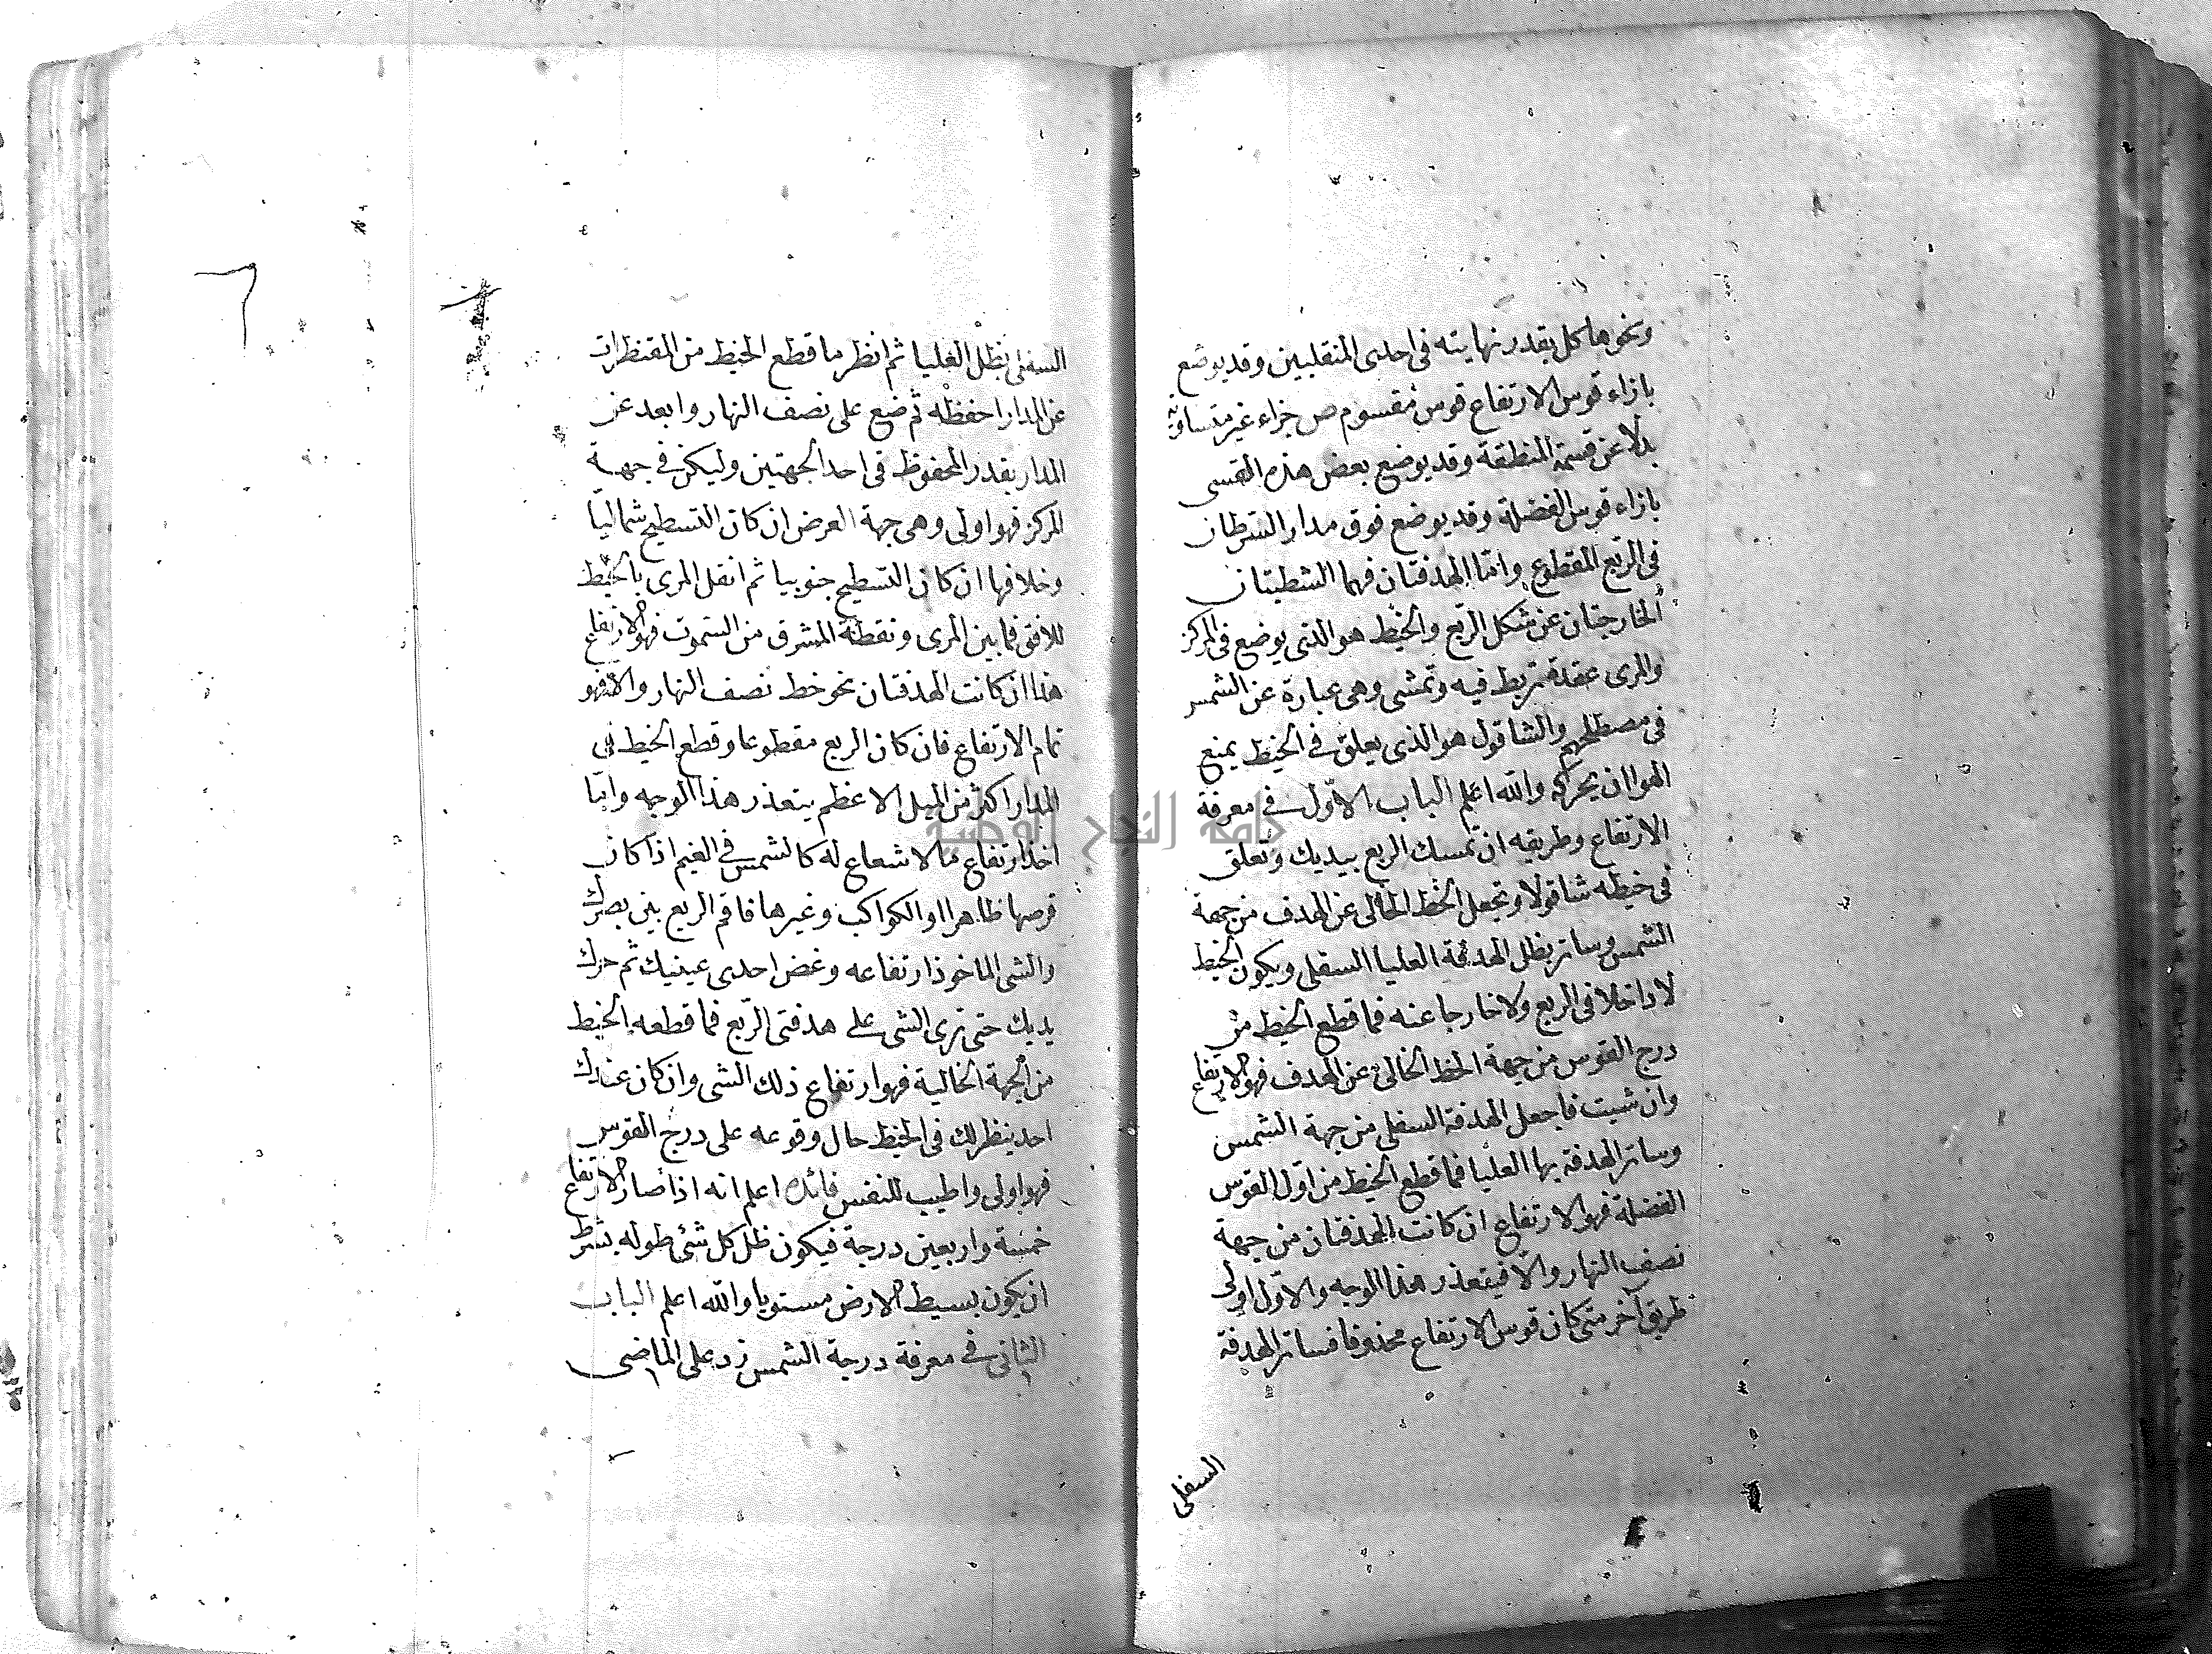 ونحوها كل بقدر نهايته في احدى المنقلبين وقد يوضع
بازاء قوس الارتفاع قوس مقسوم ص جزاء غير متساوية
بدلا عن قسمة المنطقة وقد يوضع بعض هذه القسى
بازاء قوس الفضلة وقد يوضع فوق مدار السرطان
في الربع المقطوع واما الهدفتان فهما الشطيتان
الخارجتان عن شكل الربع والخيط هو الذى يوضع في المركز
والمرى عقدة تربط فيه وتمشى وهى عبارة عن الشمس
في مصطلحهم والشاقول هو الذى يعلق في الخيط يمنع
الهوا ان يحركه والله اعلم الباب الاول في معرفة
الارتفاع وطريقه ان تمسك الربع بيديك وتعلق
في خيطه شاقولا وتجعل الخط الخالى عن الهدف من جهة
الشمس وساتر بظل الهدفة العليا السفلى ويكون الخيط
لا داخلا في الربع ولا خارجا عنه فما قطع الخيط من
درج القوس من جهة الخط الخالى عن الهدف فهو الارتفاع
وان شيت فاجعل الهدفة السفلى من جهة الشمس
وساتر الهدفة بها العليا فما قطع الخيط من اول القوس
الفضلة فهو الارتفاع ان كانت الهدفتان من جهة
نصف النهار والا فيتعذر هذا الوجه والاول اولى
طريق آخر متى كان قوس الارتفاع محذوفا فساتر الهدفة
السفلى
السفلى بظل العليا ثم انظر ما قطع الخيط من المقنظرات
عن المدار احفظه ثم ضع على نصف النهار وابعد عن
المدار بقدر المحفوظ في احد الجهتين وليكن في جهة
المركز فهو اولى وهى جهة العرض ان كان التسطيح شماليا
وخلافها ان كان التسطيح جنوبيا ثم انقل المرى بالخيط
للافق فما بين المرى ونقطة المشرق من السموت فهو الارتفاع
هذا ان كانت الهدفتان نحو خط نصف النهار والا فهو
تمام الارتفاع فان كان الربع مقطوعا وقطع الخيط في
المدار اكثر من الميل الاعظم يتعذر هذا الوجه واما
اخذ ارتفاع ما لا شعاع له كالشمس في الغيم اذا كان
قرصها ظاهرا والكواكب وغيرها فاقم الربع بين بصرك
والشى الماخوذ ارتفاعه وغض احدى عينيك ثم حرك
يديك حتى ترى الشى على هدفتى الربع فما قطعه الخيط
من الجهة الخالية فهو ارتفاع ذلك الشى وان كان عندك
احد ينظر لك في الخيط حال وقوعه على درج القوس
فهو اولى واطيب للنفس فائدة اعلم انه اذا صار الارتفاع
خمسة واربعين درجة فيكون ظل كل شئ طوله بشرط
ان يكون بسيط الارض مستويا والله اعلم الباب
الثانى في معرفة درجة الشمس زد على الماضى
جامعة النجاح الوطنية